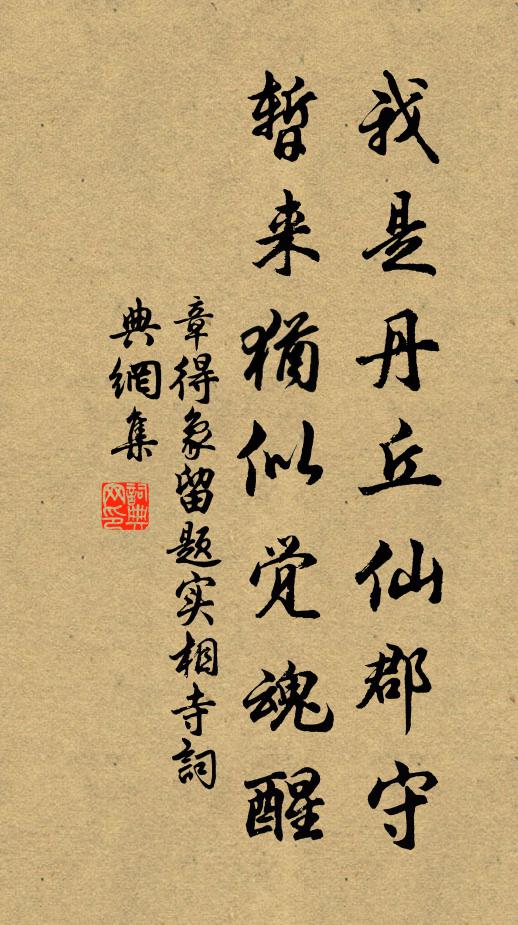 我是丹丘仙郡守
暂来猶似觉魂醒
章得象留题实相寺詞
典網集
詞典
网印